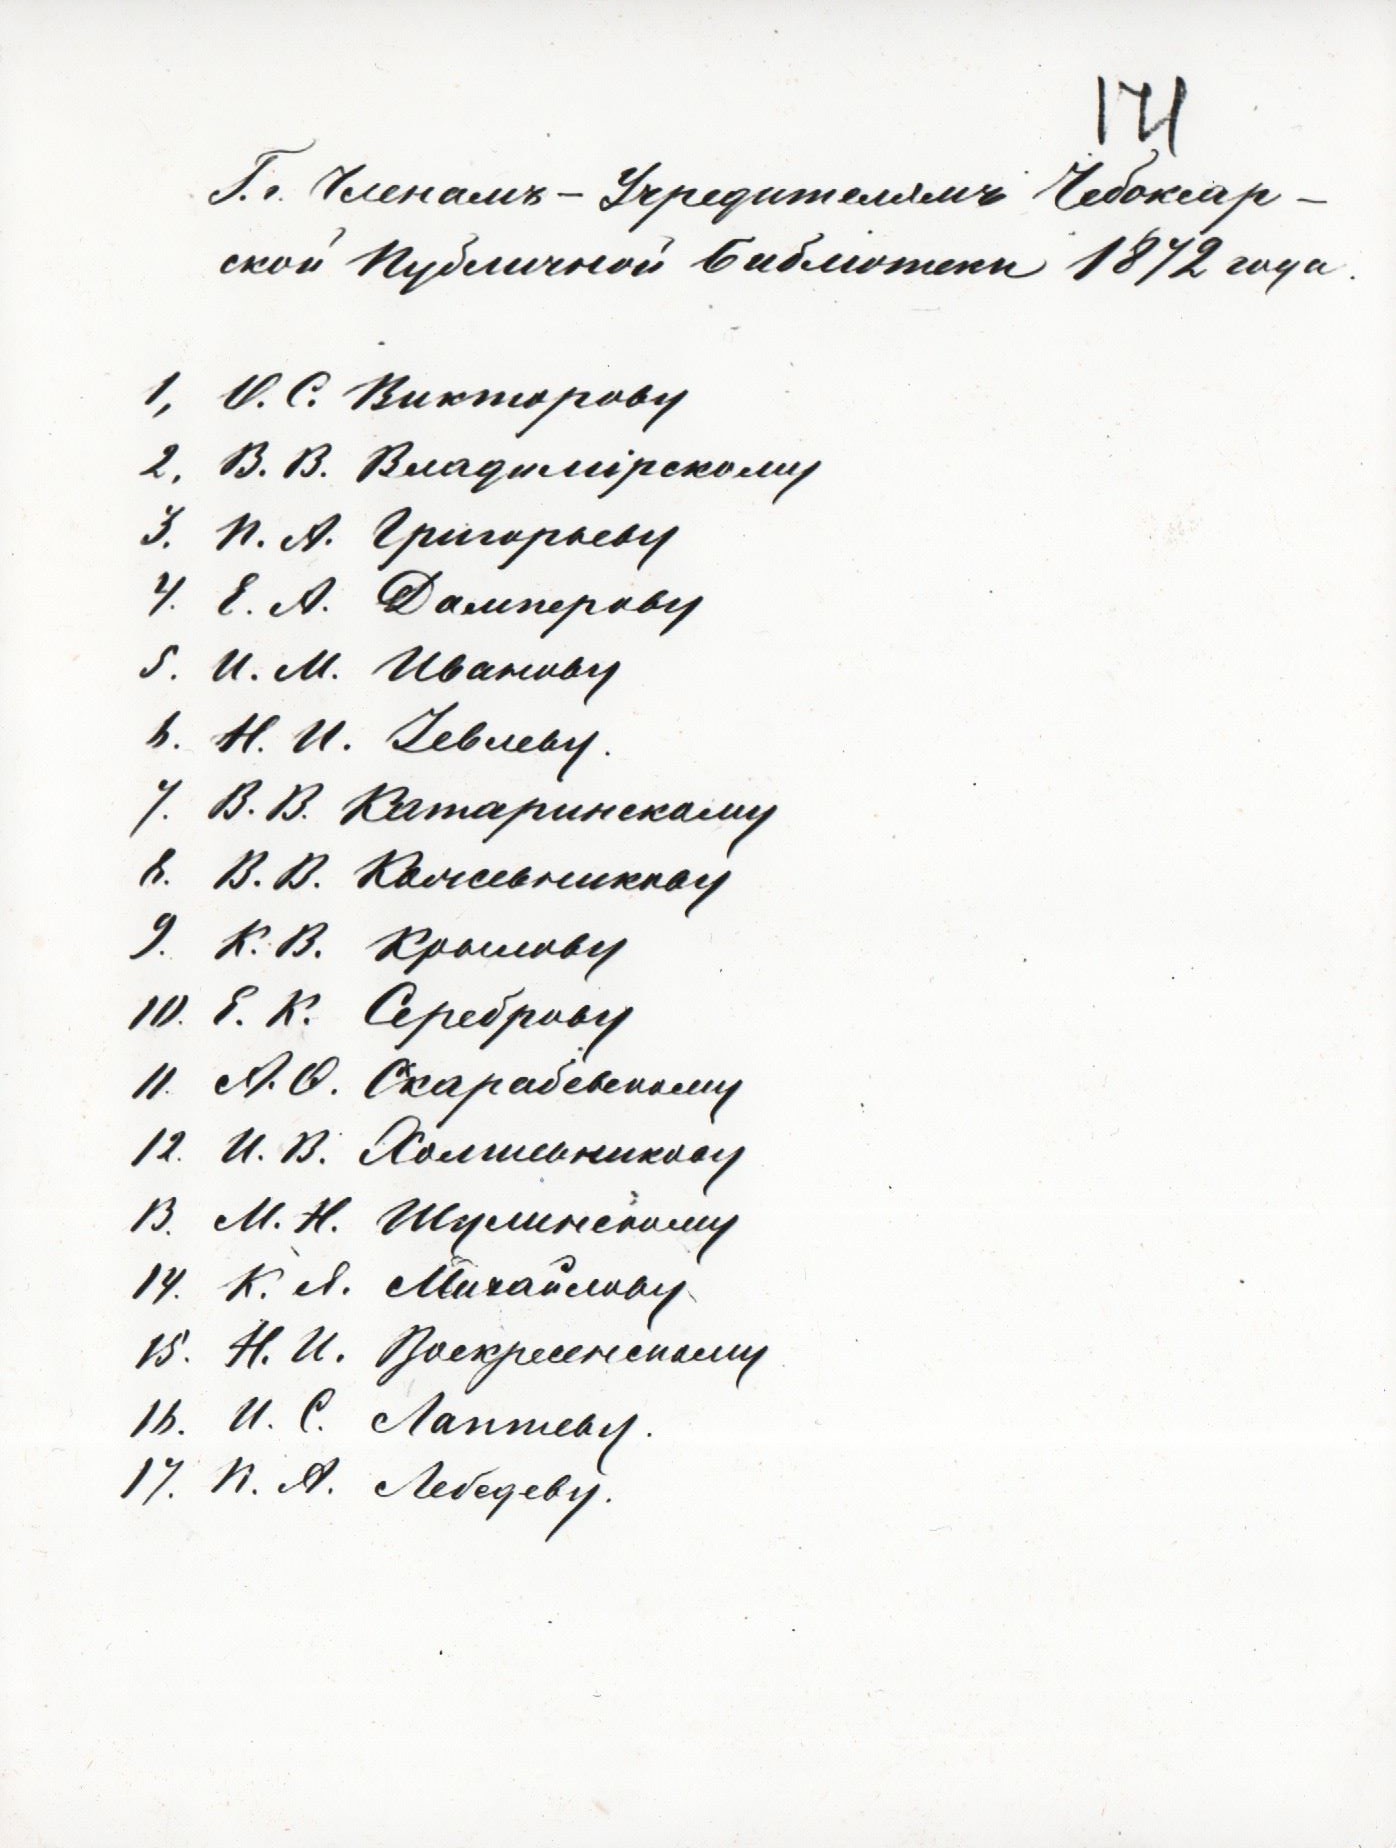 171
Г.г. Членамъ – Учредителямъ Чебоксар –
ской Публичной Библіотеки 1872 года.
1, О. С. Викторову
2, В. В. Владимірскому
3. П. А. Григорьеву
4. Е. А. Дамперову
5. И. М. Иванову
6. Н. И. Зевлеву.
7. В. В. Катаринскому
8. В. В. Кожевникову
9. К. В. Крылову
10. Е. К. Сереброву
11. А. О. Скарабевскому
12. И. В.
13. М. Н. Шулинскому
14. К. Я. Михайлову
15. Н. И. Воскресенскому
16. И. С. Лаптеву.
17. П. А. Лебедеву.